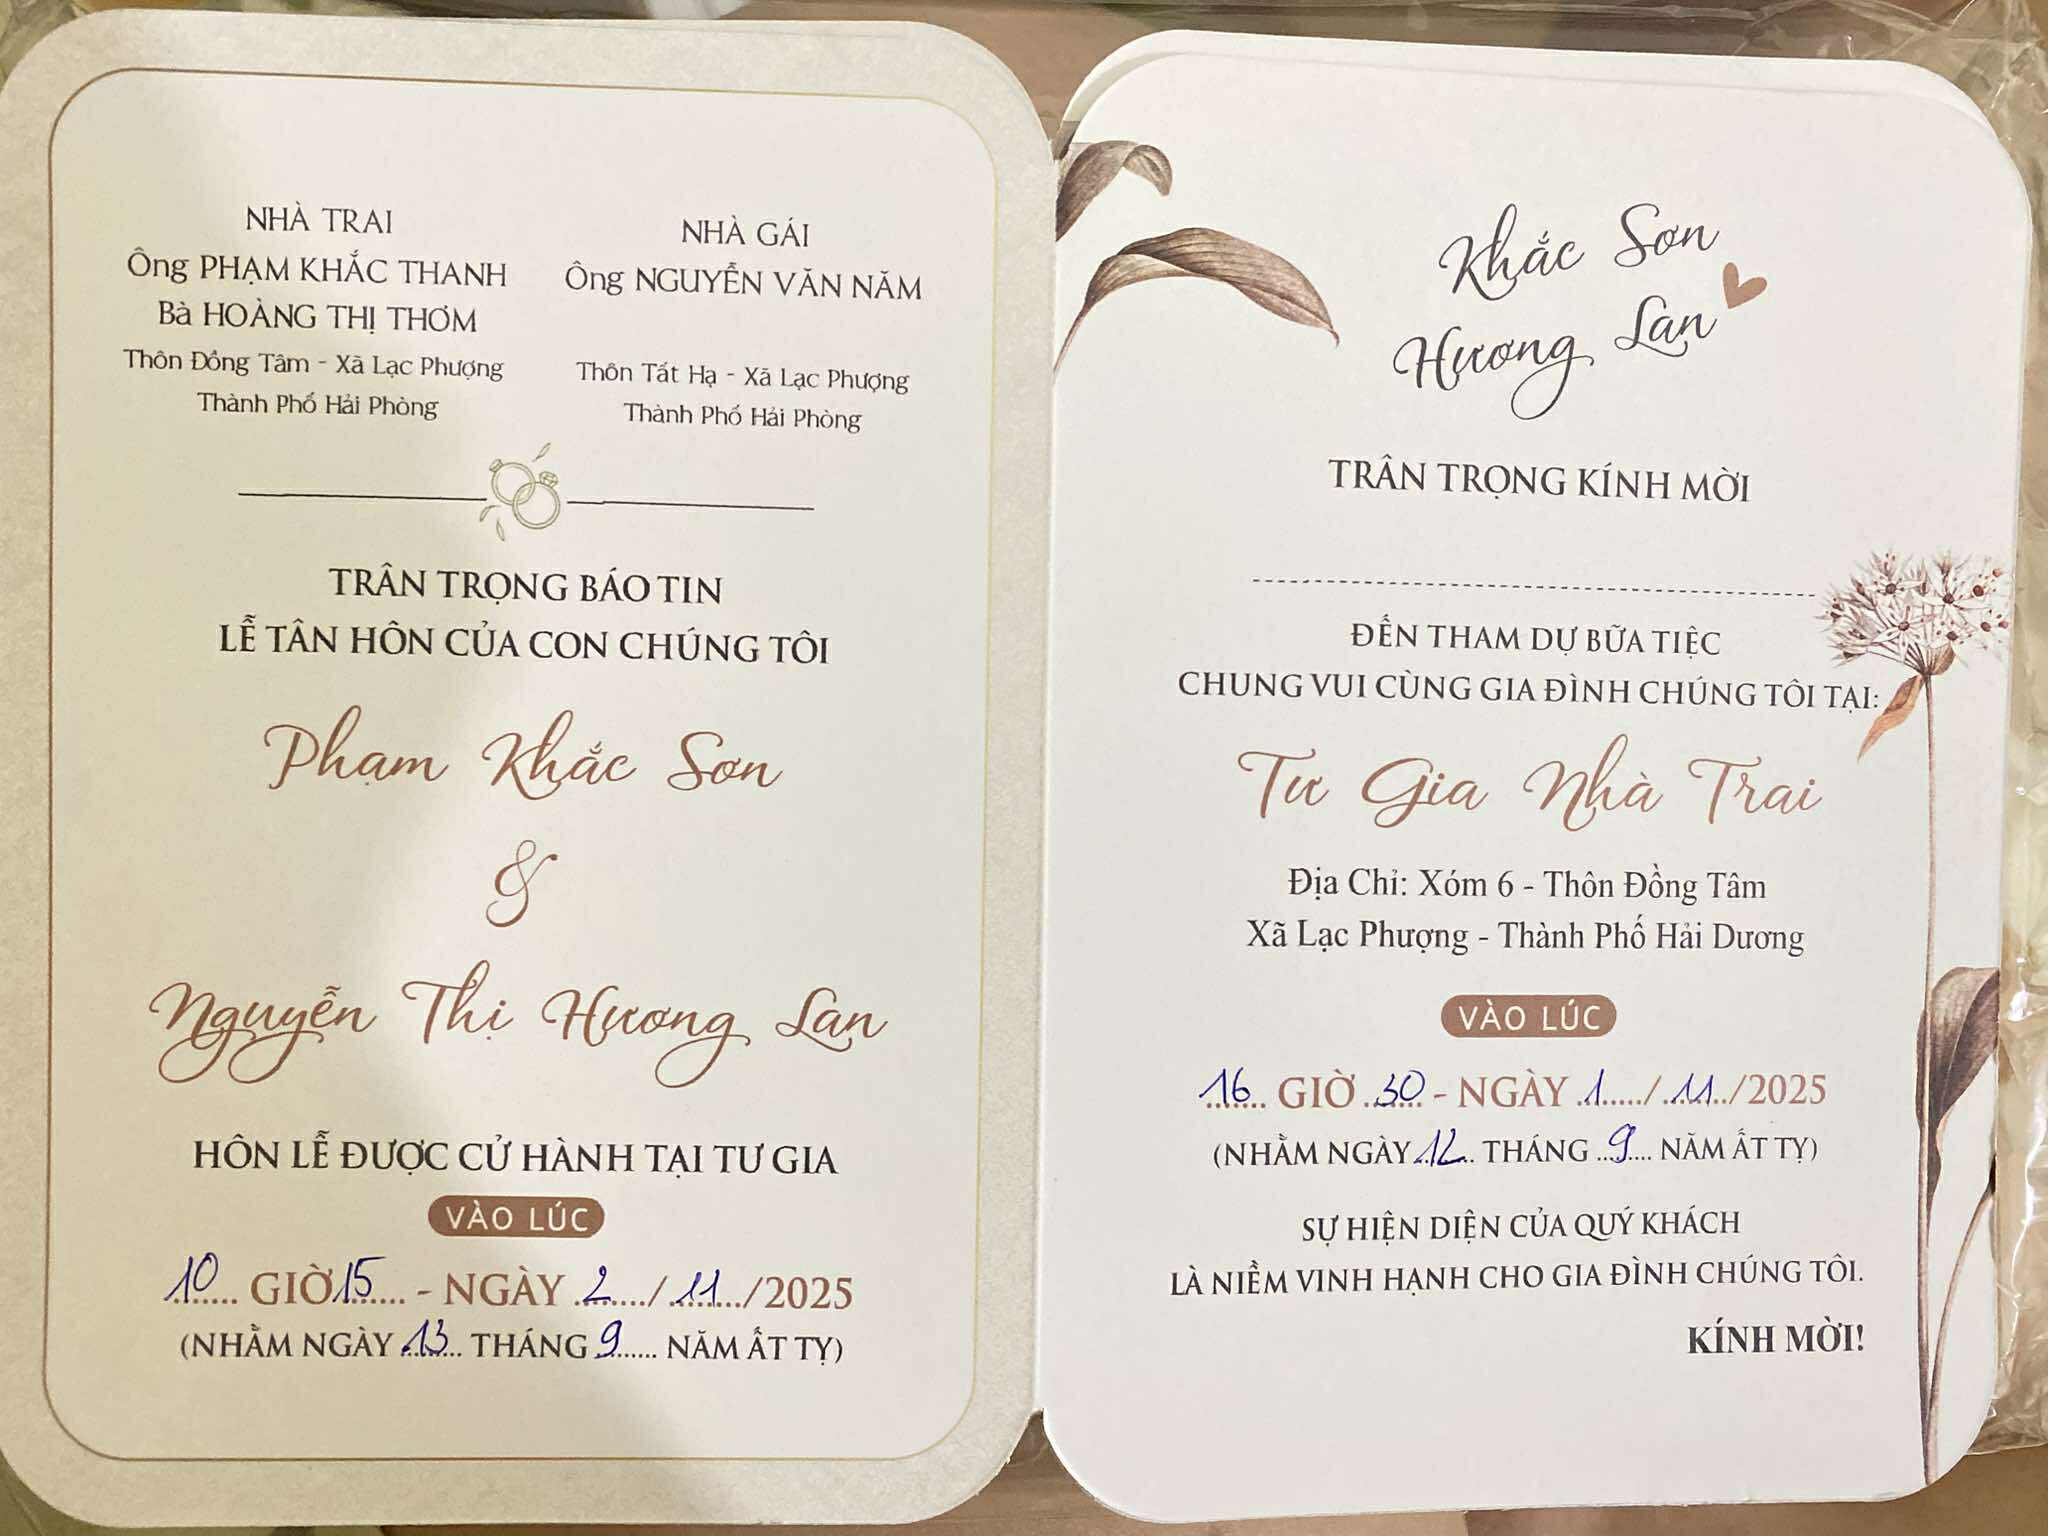 NHÀ TRAI
Ông PHẠM KHẮC THANH
Bà HOÀNG THỊ THƠM
Thôn Đồng Tâm - Xã Lạc Phượng
Thành Phố Hải Phòng
NHÀ GÁI
Ông NGUYỄN VĂN NĂM
Thôn Tất Hạ - Xã Lạc Phượng
Thành Phố Hải Phòng
TRÂN TRỌNG BÁO TIN
LỄ TÂN HÔN CỦA CON CHÚNG TÔI
Phạm Khắc Sơn
&
Nguyễn Thị Hương Lan
HÔN LỄ ĐƯỢC CỬ HÀNH TẠI TƯ GIA
VÀO LÚC
10 GIỜ 15 - NGÀY 2 / 11 /2025
(NHẰM NGÀY 13 THÁNG 9 NĂM ẤT TỴ)
Khắc Sơn
Hương Lan
TRÂN TRỌNG KÍNH MỜI
ĐẾN THAM DỰ BỮA TIỆC
CHUNG VUI CÙNG GIA ĐÌNH CHÚNG TÔI TẠI:
Tư Gia Nhà Trai
Địa Chỉ: Xóm 6 - Thôn Đồng Tâm
Xã Lạc Phượng - Thành Phố Hải Dương
VÀO LÚC
16 GIỜ 30 - NGÀY 1 / 11 /2025
(NHẰM NGÀY 12 THÁNG 9 NĂM ẤT TỴ)
SỰ HIỆN DIỆN CỦA QUÝ KHÁCH
LÀ NIỀM VINH HẠNH CHO GIA ĐÌNH CHÚNG TÔI.
KÍNH MỜI!